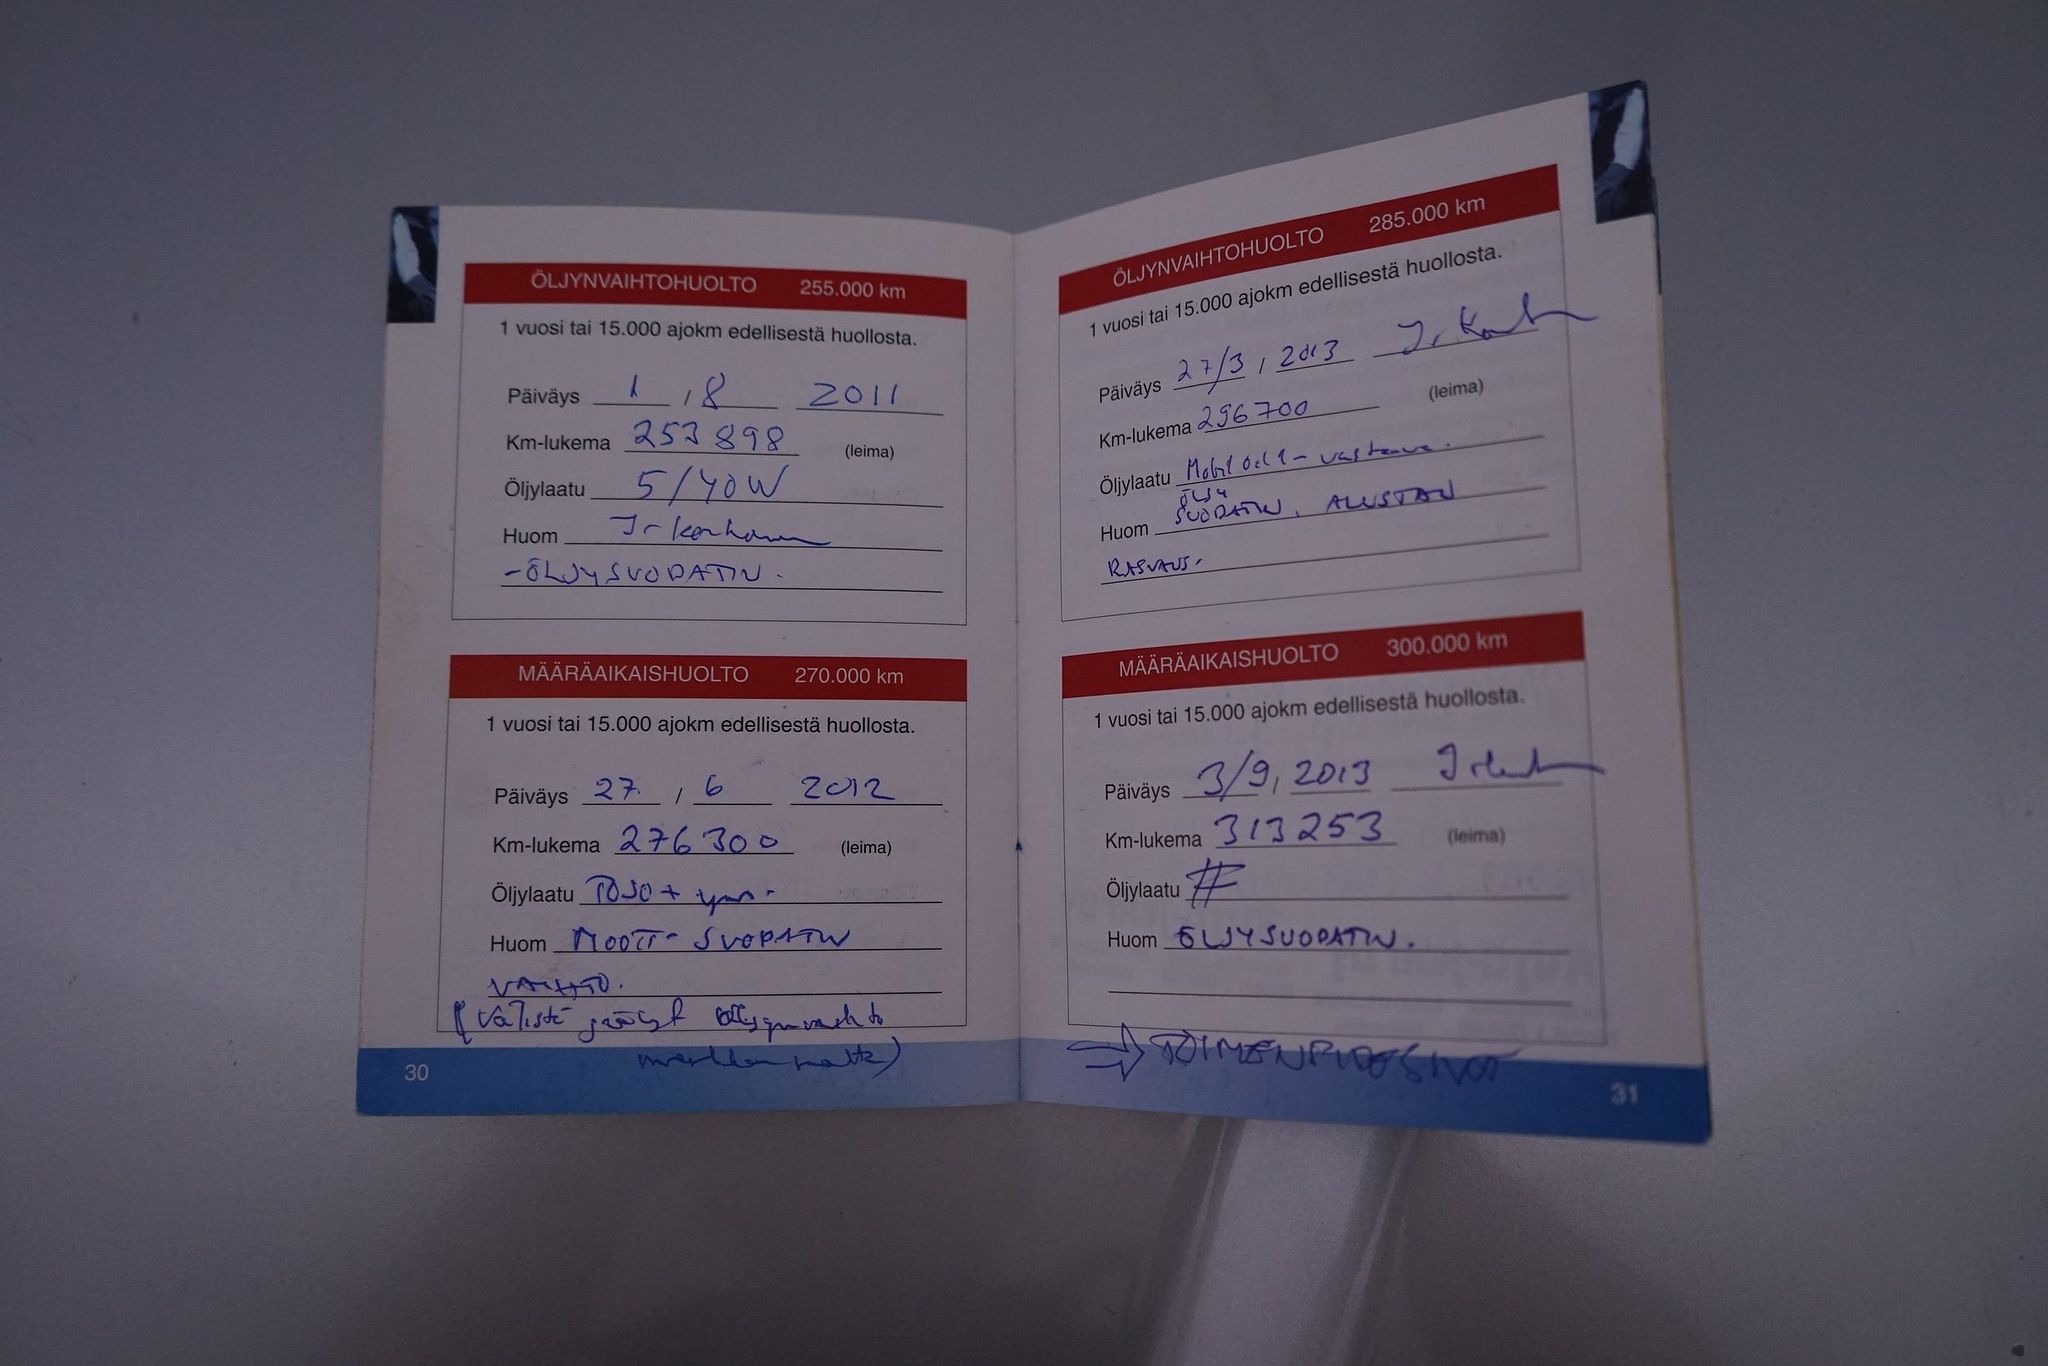 ÖLJYNVAIHTOHUOLTO 255.000 km
1 vuosi tai 15.000 ajokm edellisestä huollosta.
Päiväys 1 / 8 2011
Km-lukema 253 898 (leima)
Öljylaatu 5/40W
Huom
-ÖLJYSUODATIN.
MÄÄRÄAIKAISHUOLTO 270.000 km
1 vuosi tai 15.000 ajokm edellisestä huollosta.
Päiväys 27. / 6 2012
Km-lukema 276 300 (leima)
Öljylaatu
Huom SUODATIN
VAIHTO.
(Välistä jäänyt öljynvaihto
merkkaamatta)
30
ÖLJYNVAIHTOHUOLTO 285.000 km
1 vuosi tai 15.000 ajokm edellisestä huollosta.
Päiväys 27/3 , 2013
Km-lukema 296700 (leima)
Öljylaatu Mobil 1 - vastaava.
ÖLJY
Huom SUODATIN, ALUSTAN
RASVAUS.
MÄÄRÄAIKAISHUOLTO 300.000 km
1 vuosi tai 15.000 ajokm edellisestä huollosta.
Päiväys 3/9, 2013
Km-lukema 313253 (leima)
Öljylaatu #
Huom ÖLJYSUODATIN.
⇒ TOIMENPIDESIVUT
31